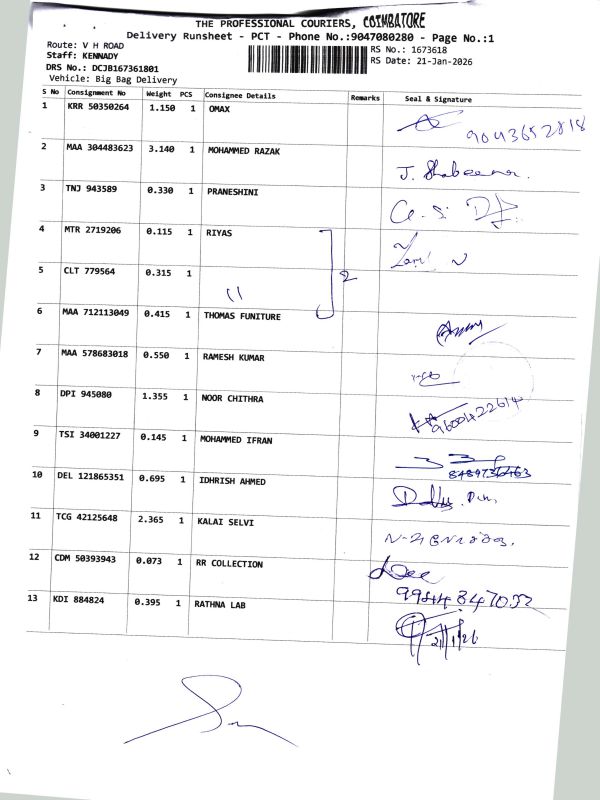 THE PROFESSIONAL COURIERS, COIMBATORE
Delivery Runsheet - PCT - Phone No.:9047080280 - Page No.:1
Route: V H ROAD
Staff: KENNADY
DRS No.: DCJB167361801
Vehicle: Big Bag Delivery
RS No.: 1673618
RS Date: 21-Jan-2026
S No Consignment No Weight PCS Consignee Details Remarks Seal & Signature
1 KRR 50350264 1.150 1 OMAX
9043652818
2 MAA 304483623 3.140 1 MOHAMMED RAZAK
3 TNJ 943589 0.330 1 PRANESHINI
4 MTR 2719206 0.115 1 RIYAS
2
5 CLT 779564 0.315 1 "
6 MAA 712113049 0.415 1 THOMAS FUNITURE
7 MAA 578683018 0.550 1 RAMESH KUMAR
8 DPI 945080 1.355 1 NOOR CHITHRA
9600422614
9 TSI 34001227 0.145 1 MOHAMMED IFRAN
10 DEL 121865351 0.695 1 IDHRISH AHMED
11 TCG 42125648 2.365 1 KALAI SELVI
12 CDM 50393943 0.073 1 RR COLLECTION
9944347032
13 KDI 884824 0.395 1 RATHNA LAB
21/1/26